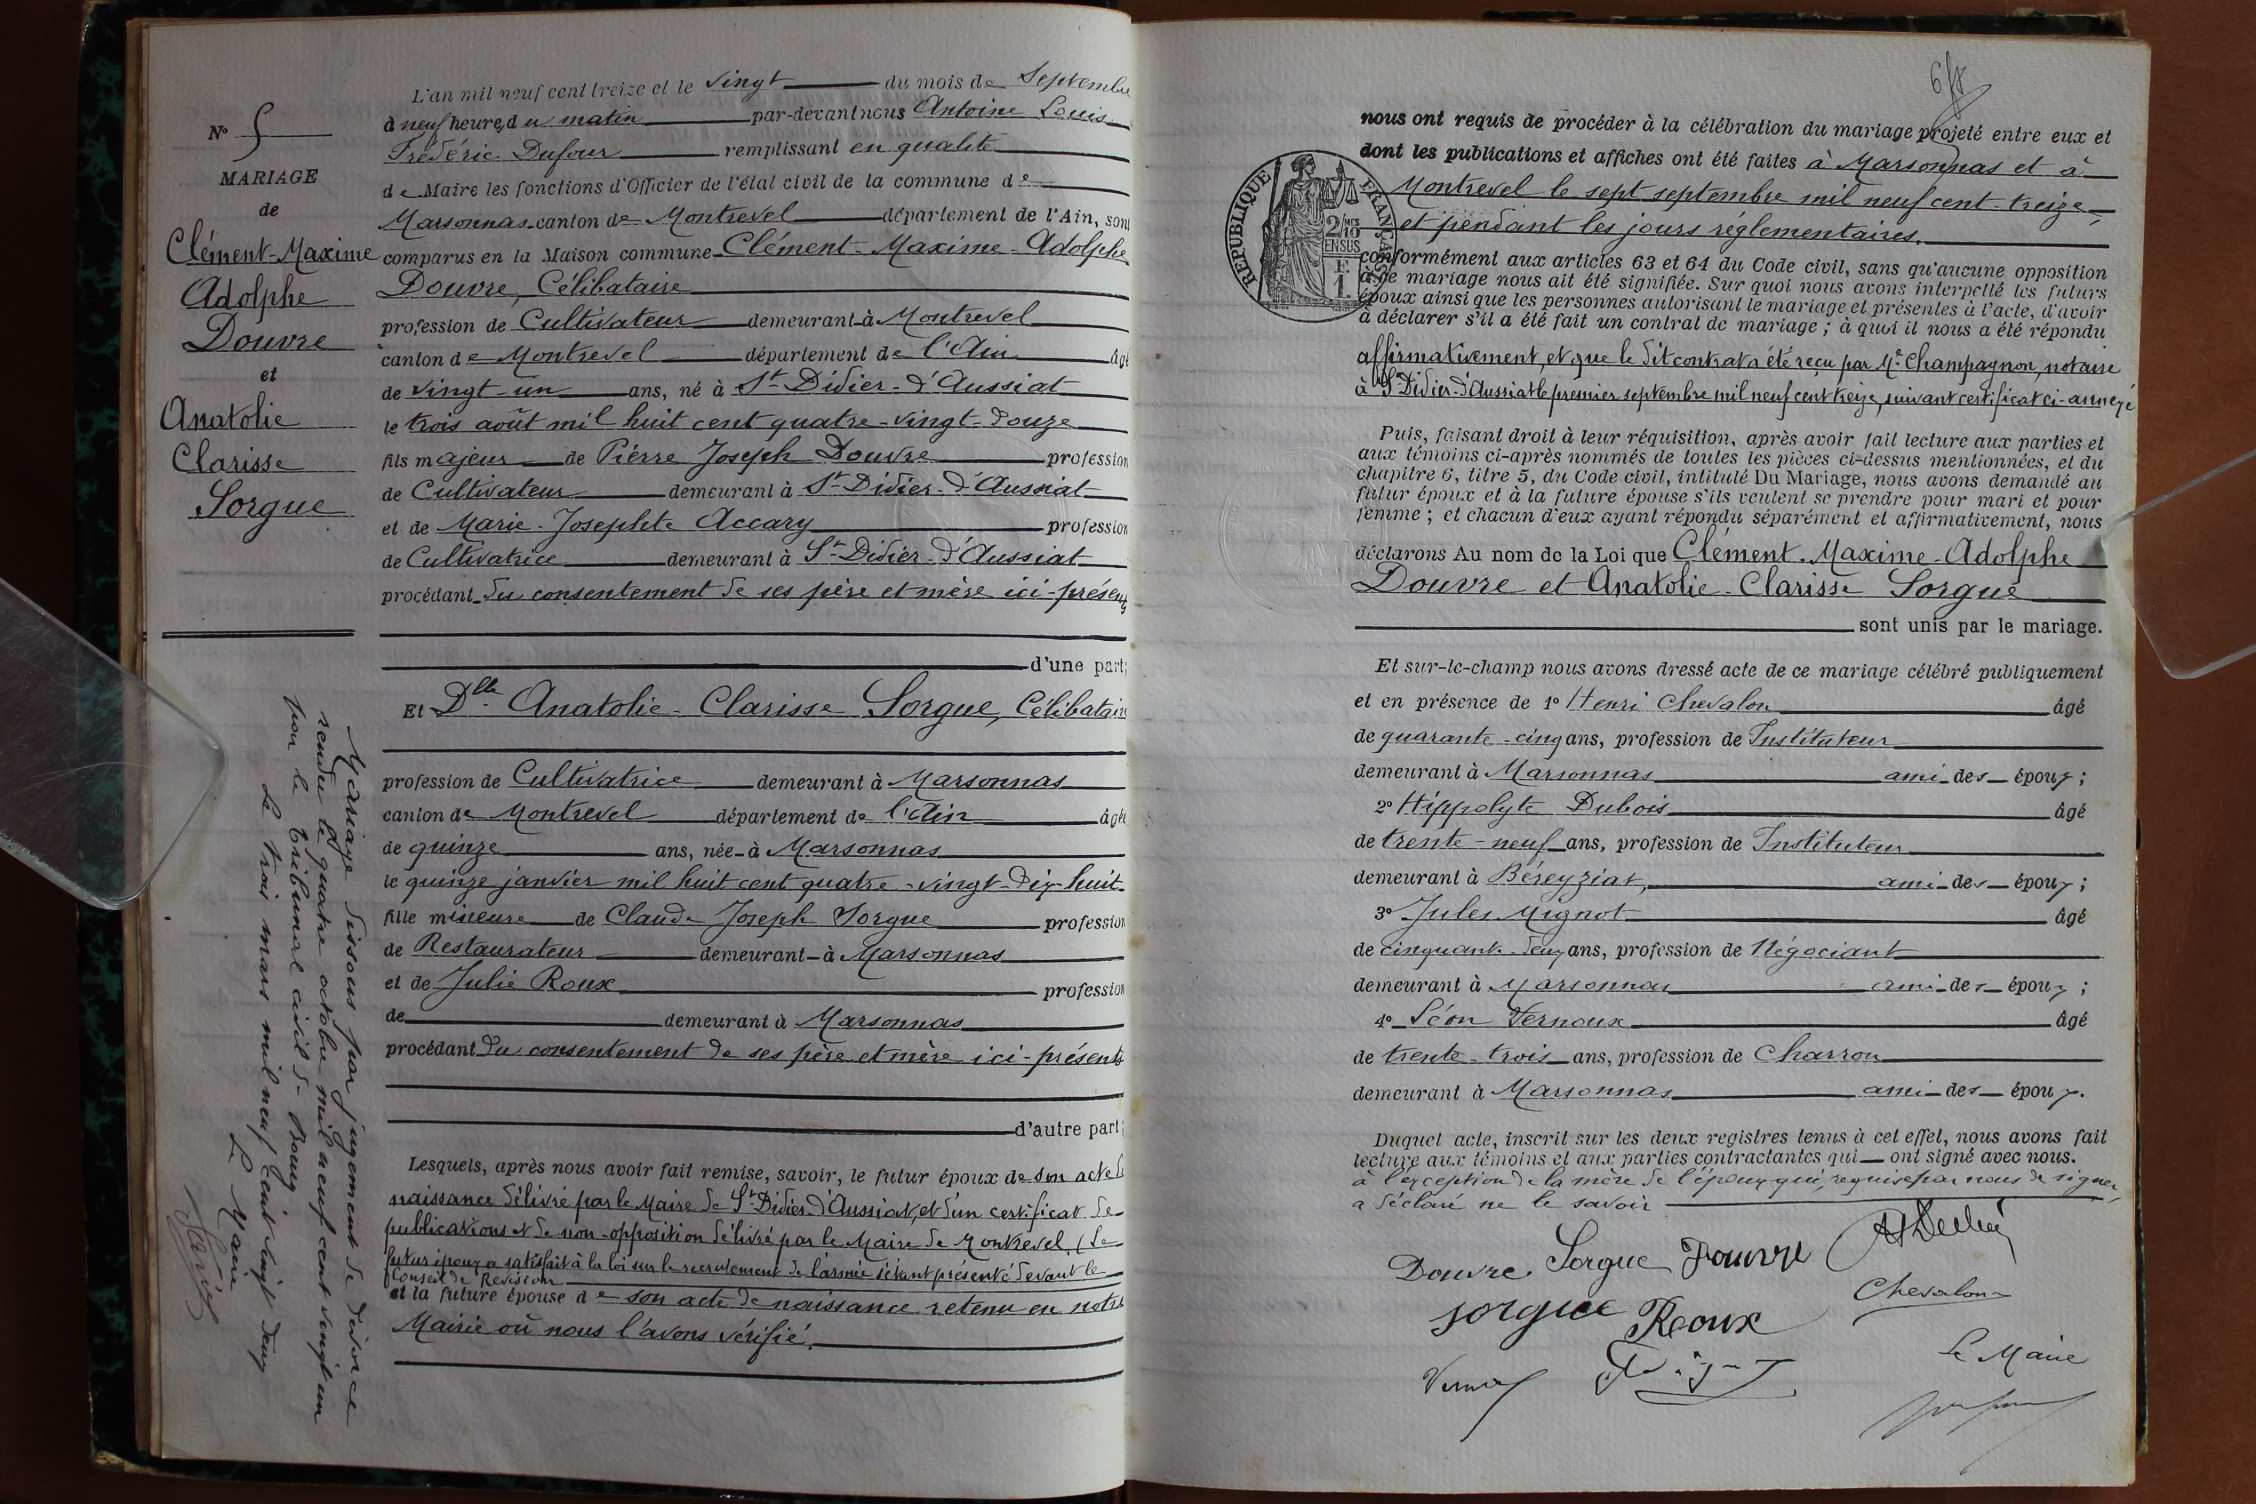 N° 5
MARIAGE
de
Clément-Maxime
Adolphe
Douvre
et
Anatolie
Clarisse
Sorgue
Mariage dissous par jugement de divorce
rendu le quatre octobre mil neuf cent vingt un
par le tribunal civil de Bourg
Le trois mars mil neuf cent vingt deux
Le Maire
L'an mil neuf cent treize et le vingt du mois de Septembre
à neuf heures, du matin par-devant nous Antoine Louis
Frédéric Dufour remplissant en qualité
de Maire les fonctions d'Officier de l'état civil de la commune de
Marsonnas canton de Montrevel département de l'Ain, sont
comparus en la Maison commune Clément-Maxime-Adolphe
Douvre, Célibataire
profession de Cultivateur demeurant à Montrevel
canton de Montrevel département de l'Ain âgé
de vingt-un ans, né à St-Didier-d'Aussiat
le trois août mil huit cent quatre-vingt-douze
fils majeur de Pierre Joseph Douvre profession
de Cultivateur demeurant à St-Didier-d'Aussiat
et de Marie-Josephte Accary profession
de Cultivatrice demeurant à St-Didier-d'Aussiat
procédant du consentement de ses père et mère ici-présents
d'une part;
Et Dlle Anatolie-Clarisse Sorgue, Célibataire
profession de Cultivatrice demeurant à Marsonnas
canton de Montrevel département de l'Ain âgée
de quinze ans, née à Marsonnas
le quinze janvier mil huit cent quatre-vingt-dix-huit
fille mineure de Claude Joseph Sorgue profession
de Restaurateur demeurant à Marsonnas
et de Julie Roux profession
de demeurant à Marsonnas
procédant du consentement de ses père et mère ici-présents
d'autre part;
Lesquels, après nous avoir fait remise, savoir, le futur époux de son acte de
naissance délivré par le Maire de St-Didier-d'Aussiat, et d'un certificat de
publications et de non-opposition délivré par le Maire de Montrevel. (Le
futur époux a satisfait à la loi sur le recrutement de l'armée s'étant présenté devant le
Conseil de Révision
et la future épouse de son acte de naissance retenu en notre
Mairie où nous l'avons vérifié.
6/8
nous ont requis de procéder à la célébration du mariage projeté entre eux et
dont les publications et affiches ont été faites à Marsonnas et à
Montrevel le sept septembre mil neuf cent-treize,
et pendant les jours réglementaires.
RÉPUBLIQUE FRANÇAISE
2/10 MES
EN SUS
F.
1
conformément aux articles 63 et 64 du Code civil, sans qu'aucune opposition
à ce mariage nous ait été signifiée. Sur quoi nous avons interpellé les futurs
époux ainsi que les personnes autorisant le mariage et présentes à l'acte, d'avoir
à déclarer s'il a été fait un contrat de mariage ; à quoi il nous a été répondu
affirmativement, et que le dit contrat a été reçu par Me Champagnon, notaire
à St-Didier-d'Aussiat le premier septembre mil neuf cent treize, suivant certificat ci-annexé
Puis, faisant droit à leur réquisition, après avoir fait lecture aux parties et
aux témoins ci-après nommés de toutes les pièces ci-dessus mentionnées, et du
chapitre 6, titre 5, du Code civil, intitulé Du Mariage, nous avons demandé au
futur époux et à la future épouse s'ils veulent se prendre pour mari et pour
femme ; et chacun d'eux ayant répondu séparément et affirmativement, nous
déclarons Au nom de la Loi que Clément-Maxime-Adolphe
Douvre et Anatolie-Clarisse Sorgue
sont unis par le mariage.
Et sur-le-champ nous avons dressé acte de ce mariage célébré publiquement
et en présence de 1° Henri Chevalon âgé
de quarante-cinq ans, profession de Instituteur
demeurant à Marsonnas ami des époux ;
2° Hippolyte Dubois âgé
de trente-neuf ans, profession de Instituteur
demeurant à Béreyziat, ami des époux ;
3° Jules Mignot âgé
de cinquante-deux ans, profession de Négociant
demeurant à Marsonnas ami des époux ;
4° Léon Vernoux âgé
de trente-trois ans, profession de Charron
demeurant à Marsonnas ami des époux.
Duquel acte, inscrit sur les deux registres tenus à cet effet, nous avons fait
lecture aux témoins et aux parties contractantes qui ont signé avec nous.
à l'exception de la mère de l'époux qui, requise par nous de signer,
a déclaré ne le savoir
Douvre Sorgue Douvre
Chevalon
Sorgue Roux
Le Maire